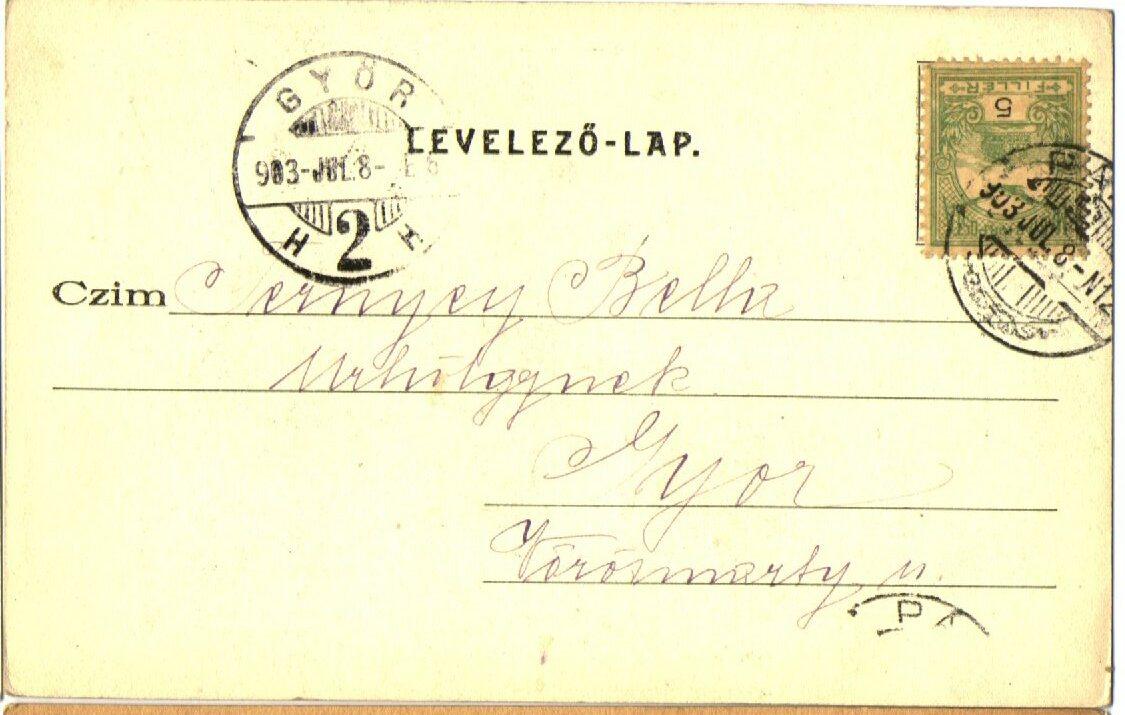 GYŐR
903-JUL.8-
H 2 H
LEVELEZŐ-LAP.
FILLÉR
5
903 JUL 8-N12
Czim Ternyey Bella
Urhölgynek
Győr
Vörösmarty u.
PÁ